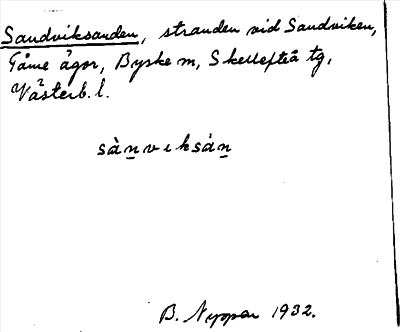 Sandviksanden, stranden vid Sandviken,
Tåme ägor, Byske sn, Skellefteå tg,
Västerb. l.
sànvıksàn
B. Nyman 1932.